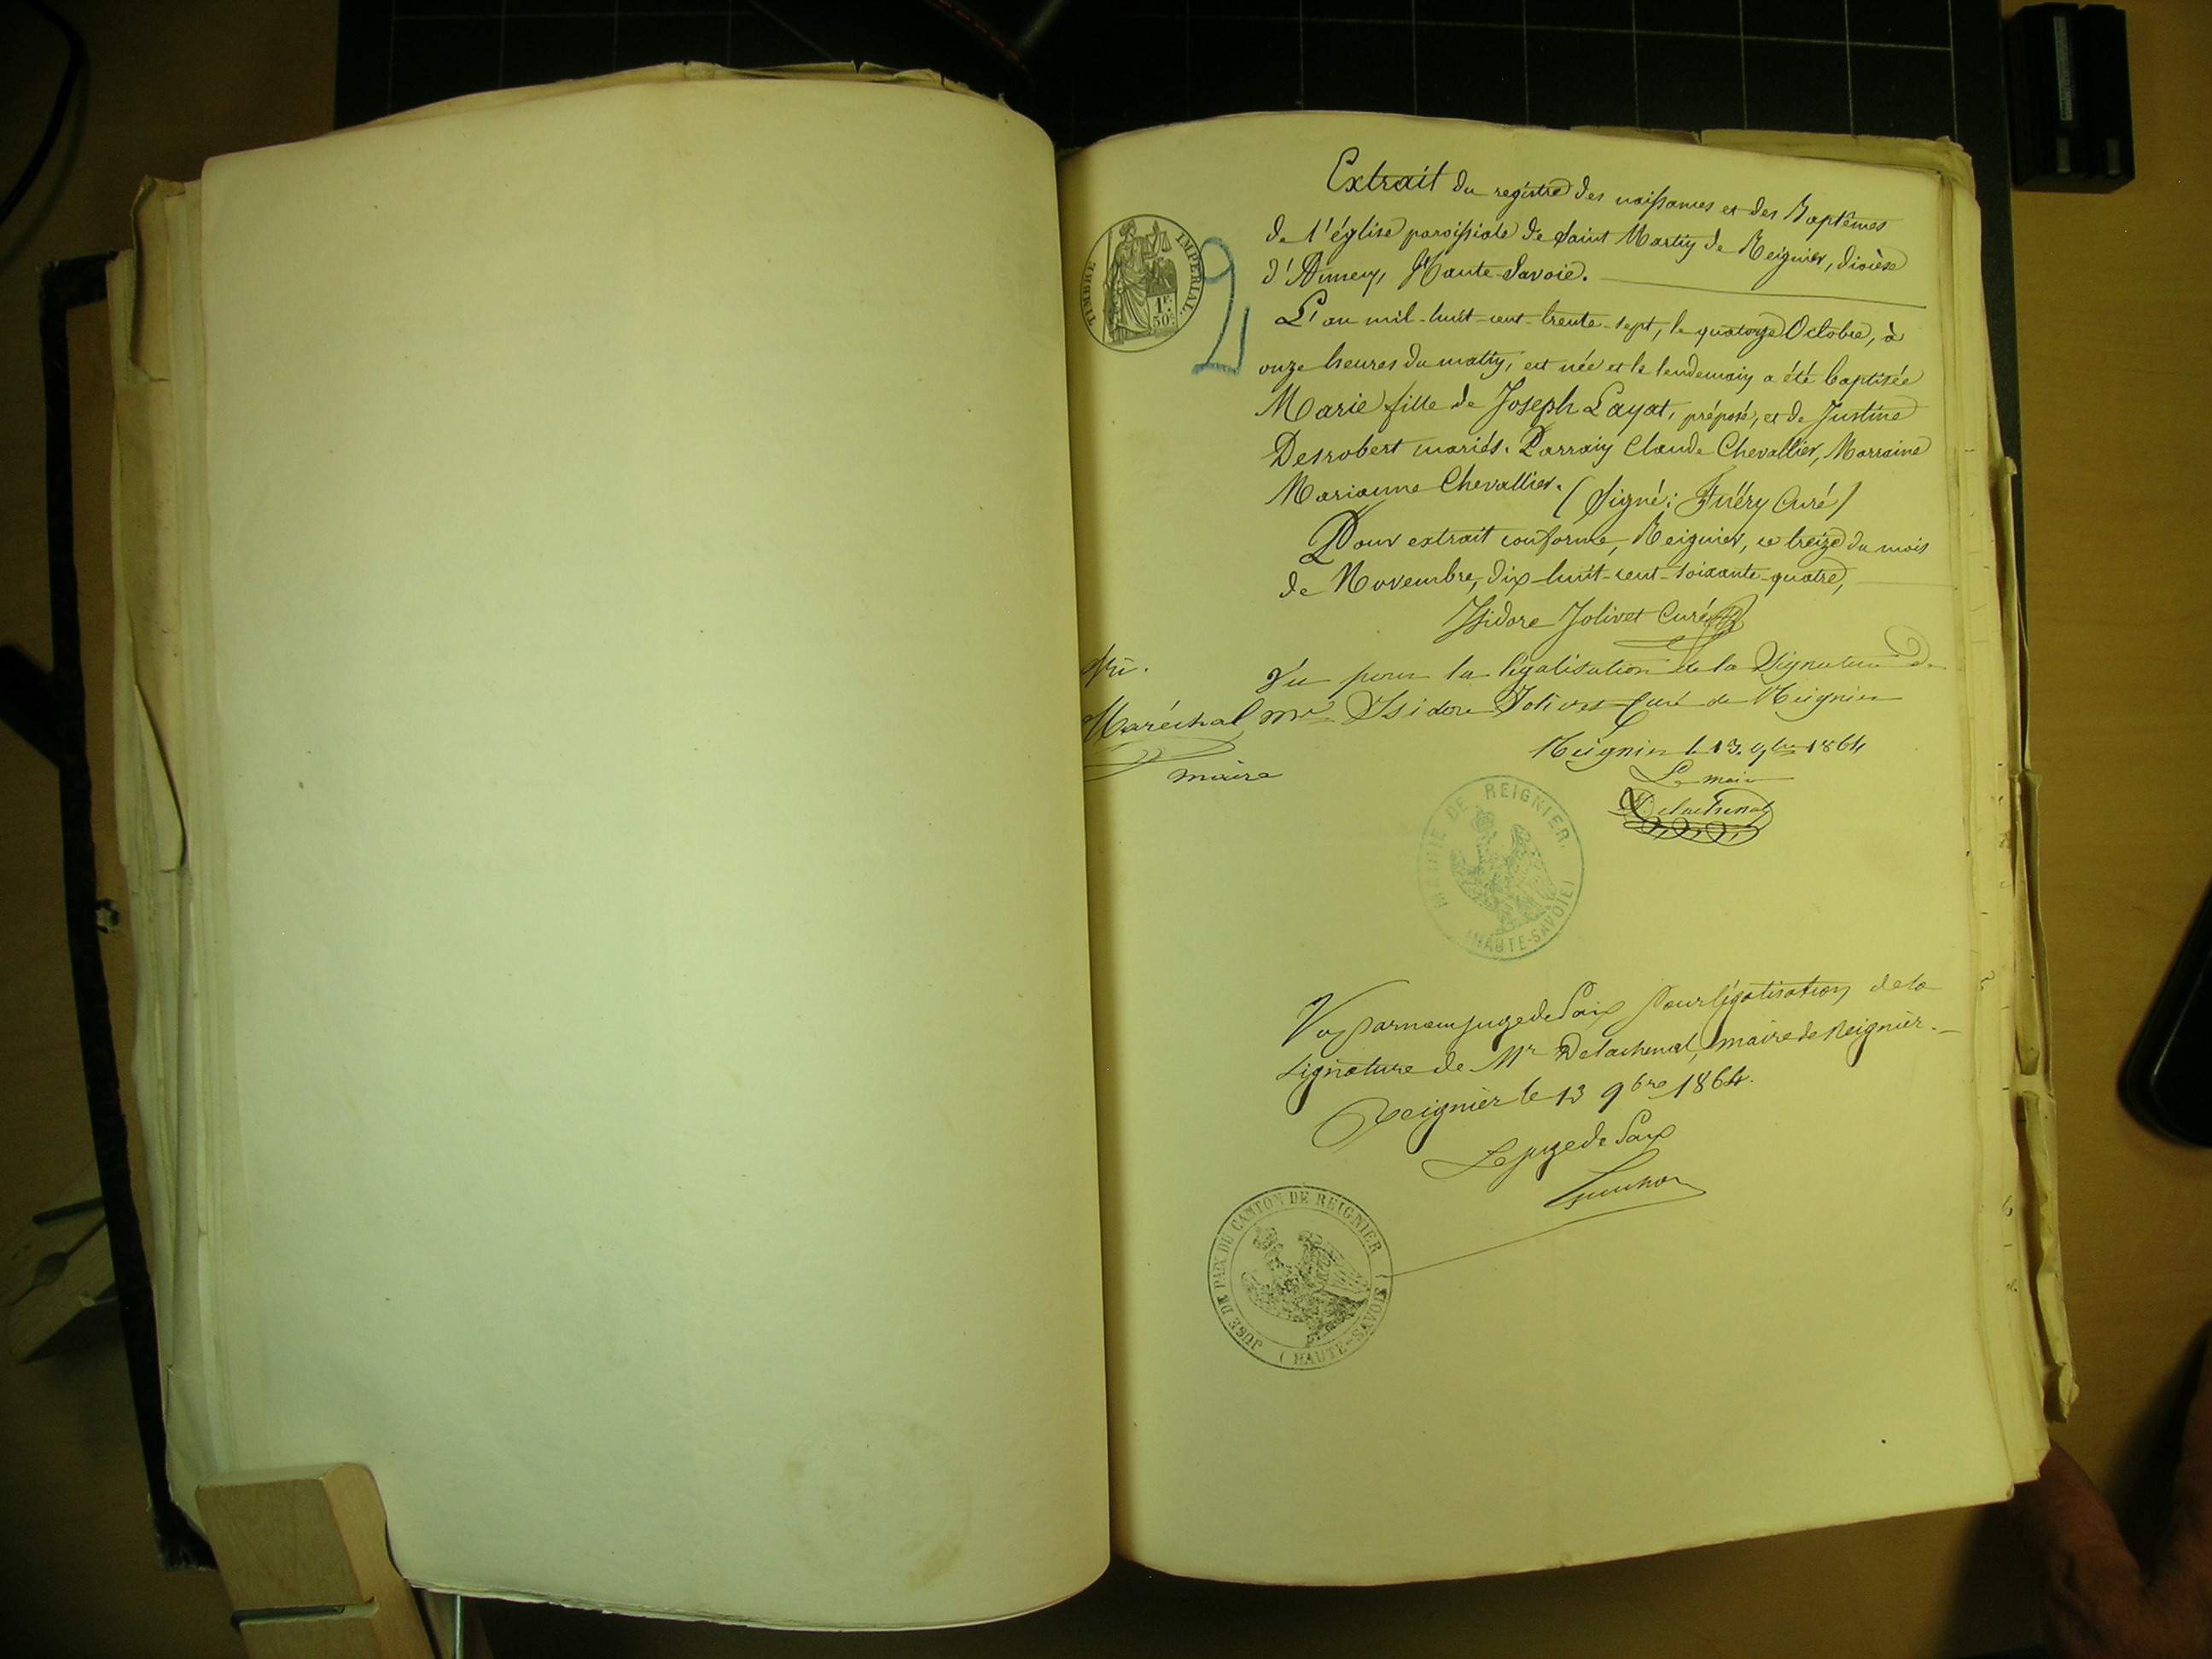 Extrait du registre des naissances et des Baptêmes
de l'église paroissiale de Saint Martin de Reignier, diocèse
d'Annecy, Haute-Savoie.
L'an mil-huit-cent-trente-sept, le quatorze Octobre, à
onze heures du matin, est née et le lendemain a été baptisée
Marie fille de Joseph Layat, préposé, et de Justine
Desrobert mariés. Parrain Claude Chevallier, Marraine
Marianne Chevallier. (Signé: Curé)
Pour extrait conforme, Reignier, ce treize du mois
de Novembre, dix-huit-cent-soixante-quatre,
Isidore Jolivet Curé
Vu pour la légalisation de la Signature de
Mr Isidore Jolivet Curé de Reignier
Reignier le 13. 9bre 1864
Le maire
Delachenal
Vu.
Maréchal
maire
TIMBRE IMPERIAL
1F.
50c.
MAIRIE DE REIGNIER,
(HAUTE-SAVOIE)
Vu par nous juge de Paix pour légalisation de la
signature de Mr Delachenal, maire de Reignier.
Reignier le 13 9bre 1864.
Le juge de Paix
JUGE DE PAIX DU CANTON DE REIGNIER
(HAUTE-SAVOIE)